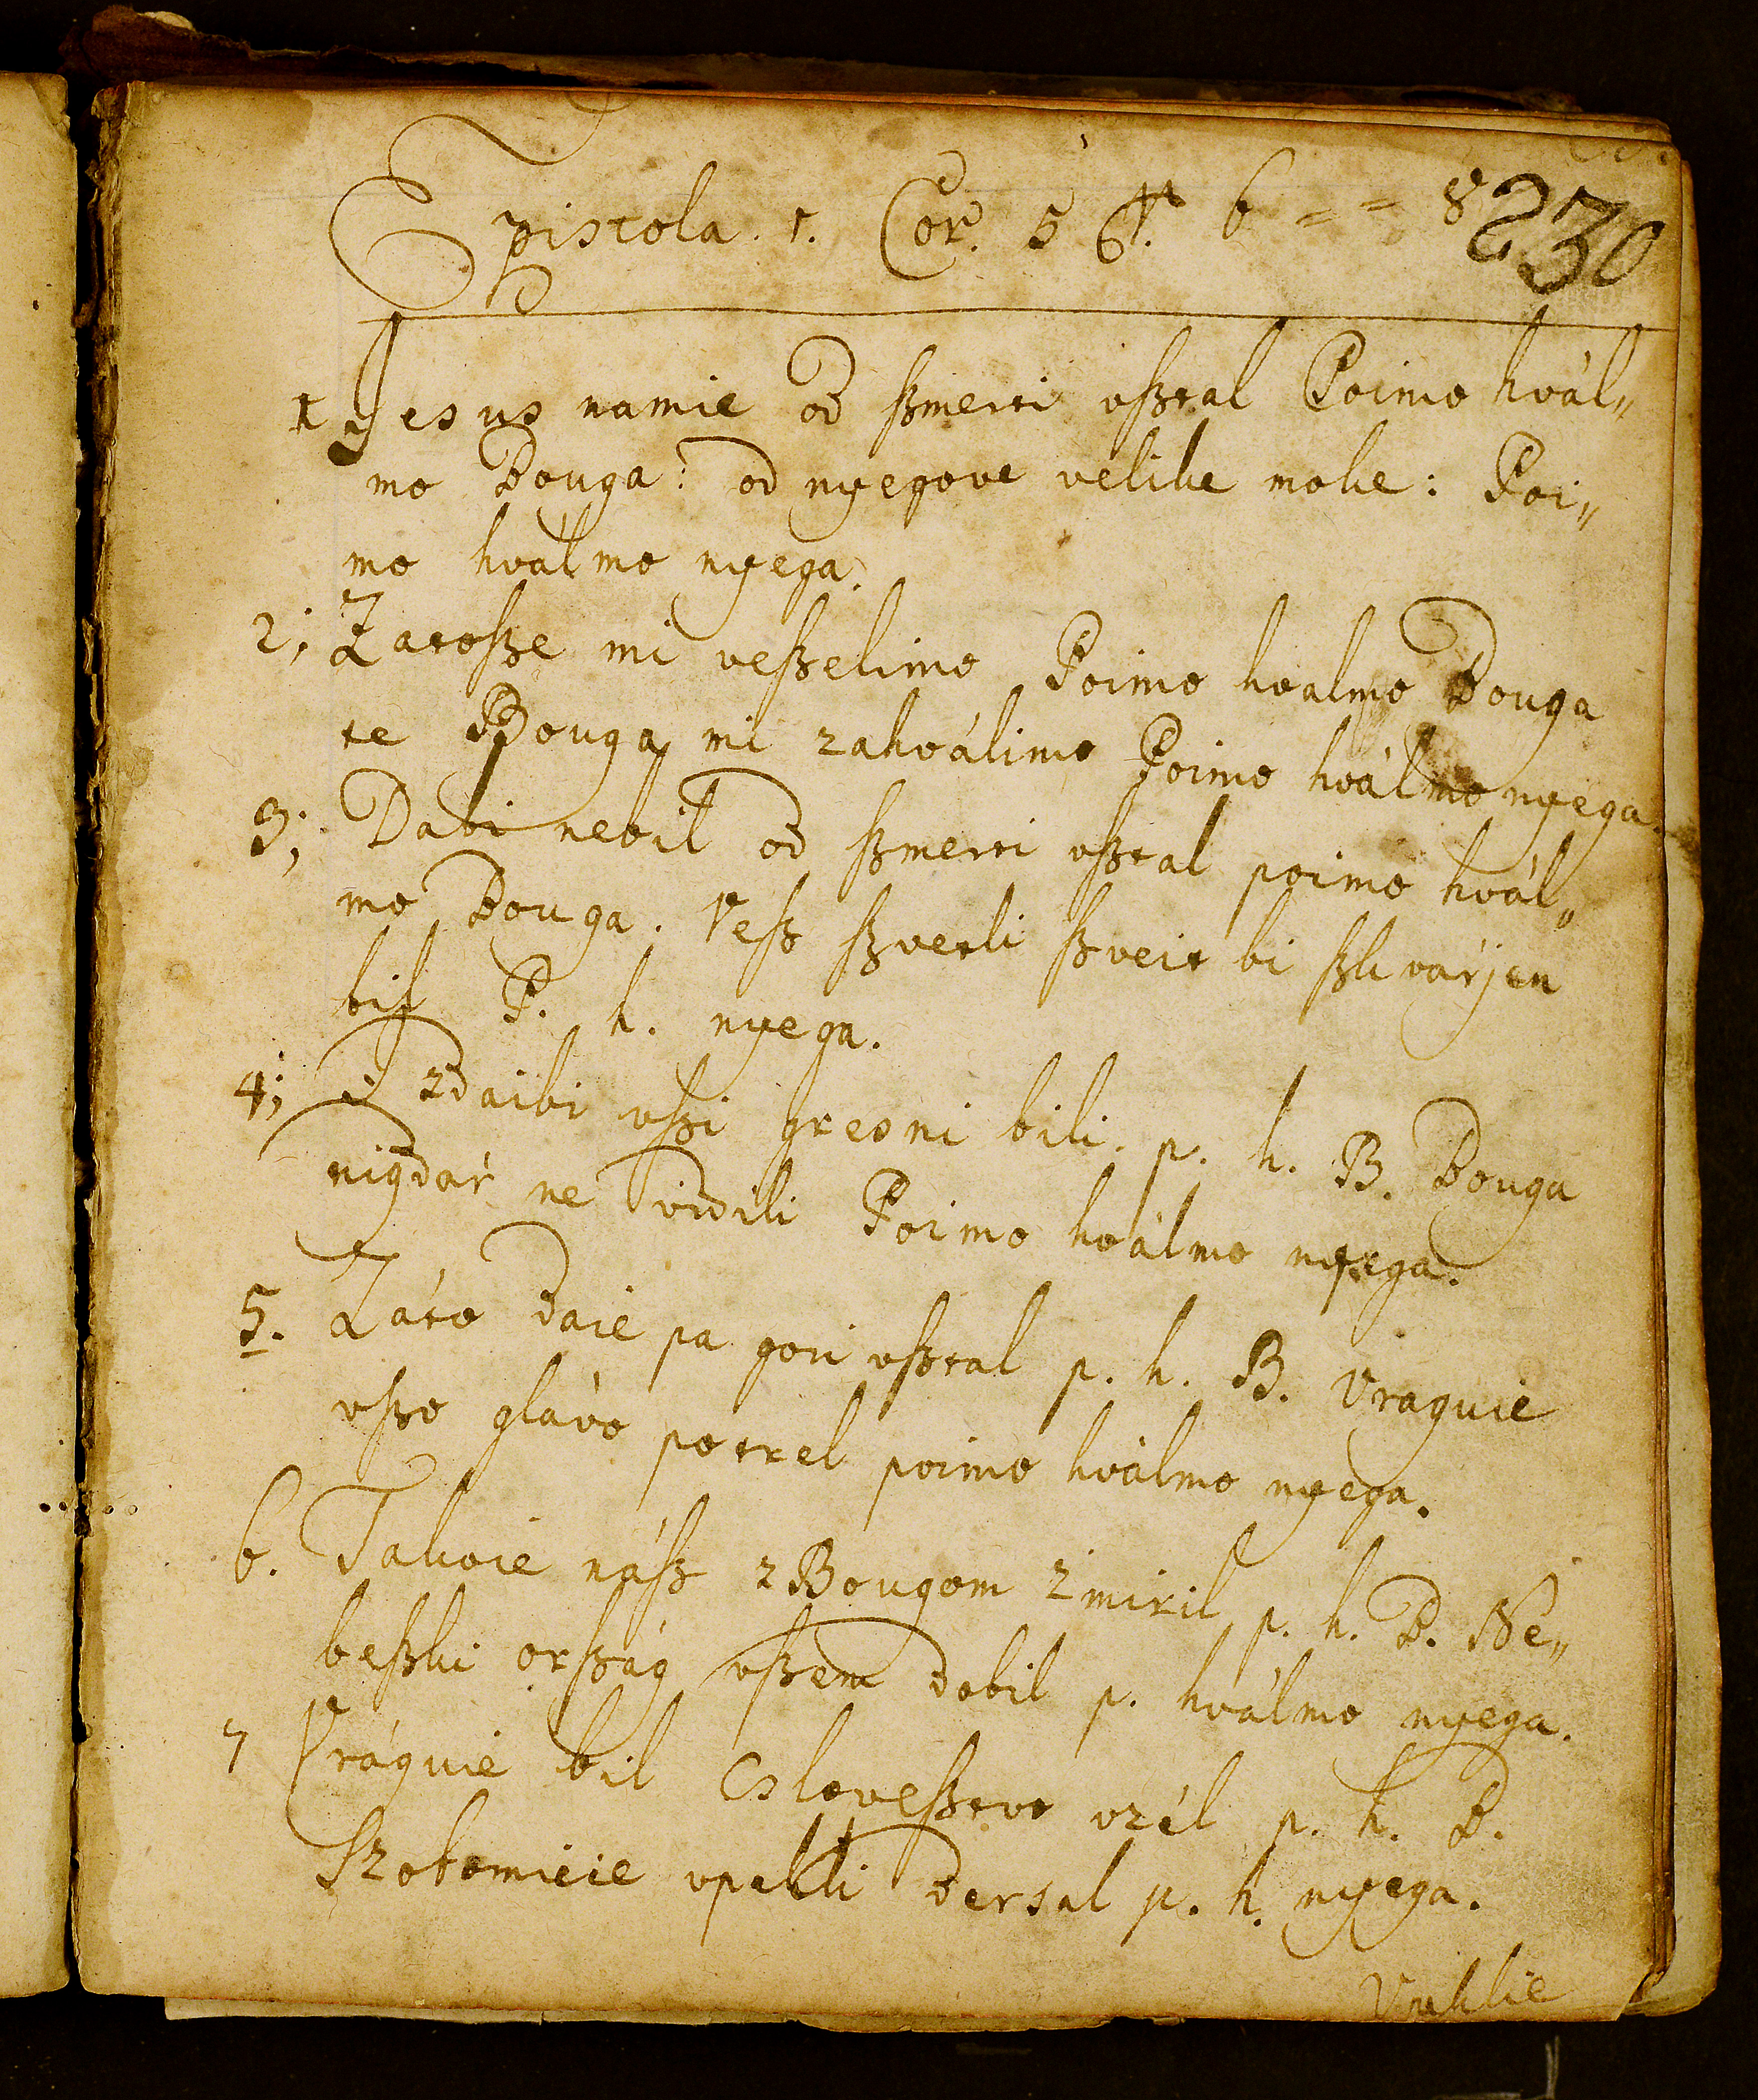 Epistola. 1. Cor. 5 v. 6 = = 8
230
1 Jesus namie od ßmerti vßtal Poimo hvál„
mo Bouga: od nyegove velike moke: Poi„
mo hválmo nyega.
2; Zatoßze mi veßzelimo Poimo hvalmo Bouga
te Bouga mi zahválimo Poimo hválmo nyega.
3; Dabi nebil od ßmerti vßtal poimo hvál„
mo Bouga. Veß ßzvetli ßveit bi ßkvárjen
bil P. h. nyega.
4; I zdaibi vßi gresni bili. p. h. B. Bouga
nigdár ne vidili Poimo hválmo nyega.
5. Záto daie pa gori vßtal p. h. B. Vraguie
vßo glávo potrel poimo hválmo nyega.
6. Takoie náß z Bougom zmiril p. h. B. Ne„
beßki orßág vßem dobil p. hválmo nyega.
7 Vráguie bil Csloveßtvo vzél p. h. B.
Szobomieie vpekli dersal p. h. nyega.
Vpeklie